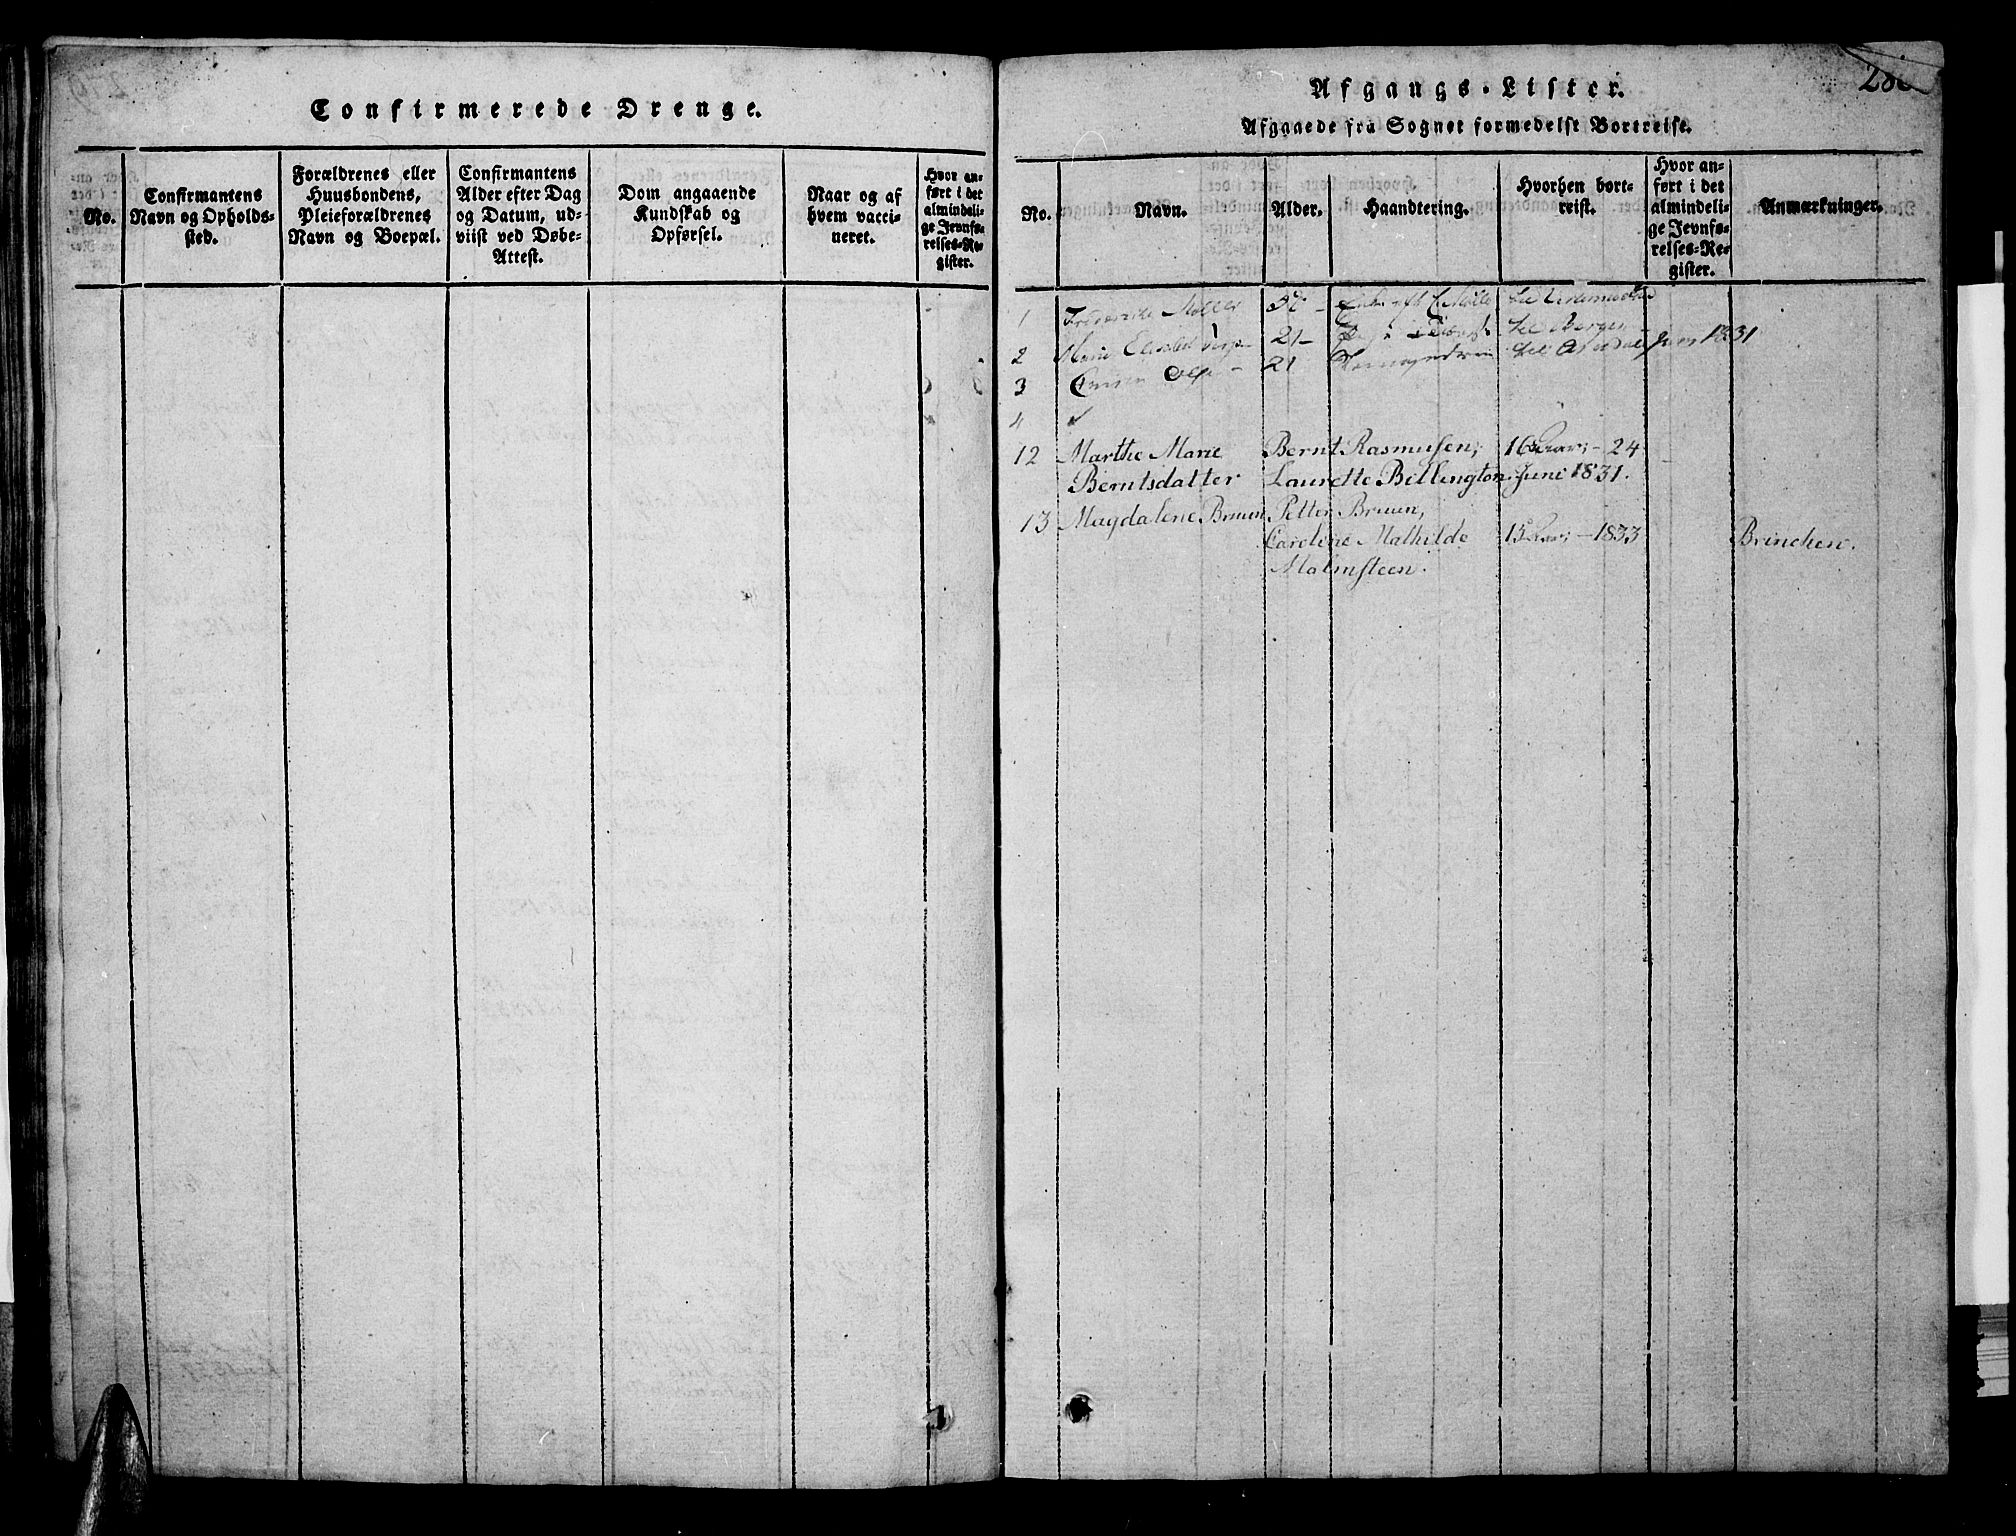 Confirmerede Drenge.
No.
Confirmantens
Navn og Opholds-
sted.
Forældrenes eller
Huusbondens,
Pleieforældrenes
Navn og Boepæl.
Confirmantens
Alder efter Dag
og Datum, ud-
viist ved Døbe-
Attest.
Dom angaaende
Kundskab og
Opførsel.
Naar og af
hvem vacci-
neret.
Hvor an-
ført i det
almindeli-
ge Jevnfø-
relses-Re-
gister.
Afgangs-Lister.
Afgaaede fra Sognet formedelst Bortreise.
No.
Navn.
Alder.
Haandtering.
Hvorhen bort-
reist.
Hvor an-
ført i det
almindeli-
ge Jevnfø-
relses-Re-
gister.
Anmærkninger.
1 Møller
2 Marie 21- til Bergen
3 21 til 1831
4
12 Marthe Marie Bernt Rasmusen, 16 - 24
Berntsdatter Laurette Billington. Juni 1831.
13 Magdalene Bruun Petter Bruun,
Caroline Mathilde 15 - 1833 Brinchen.
Malmsteen.